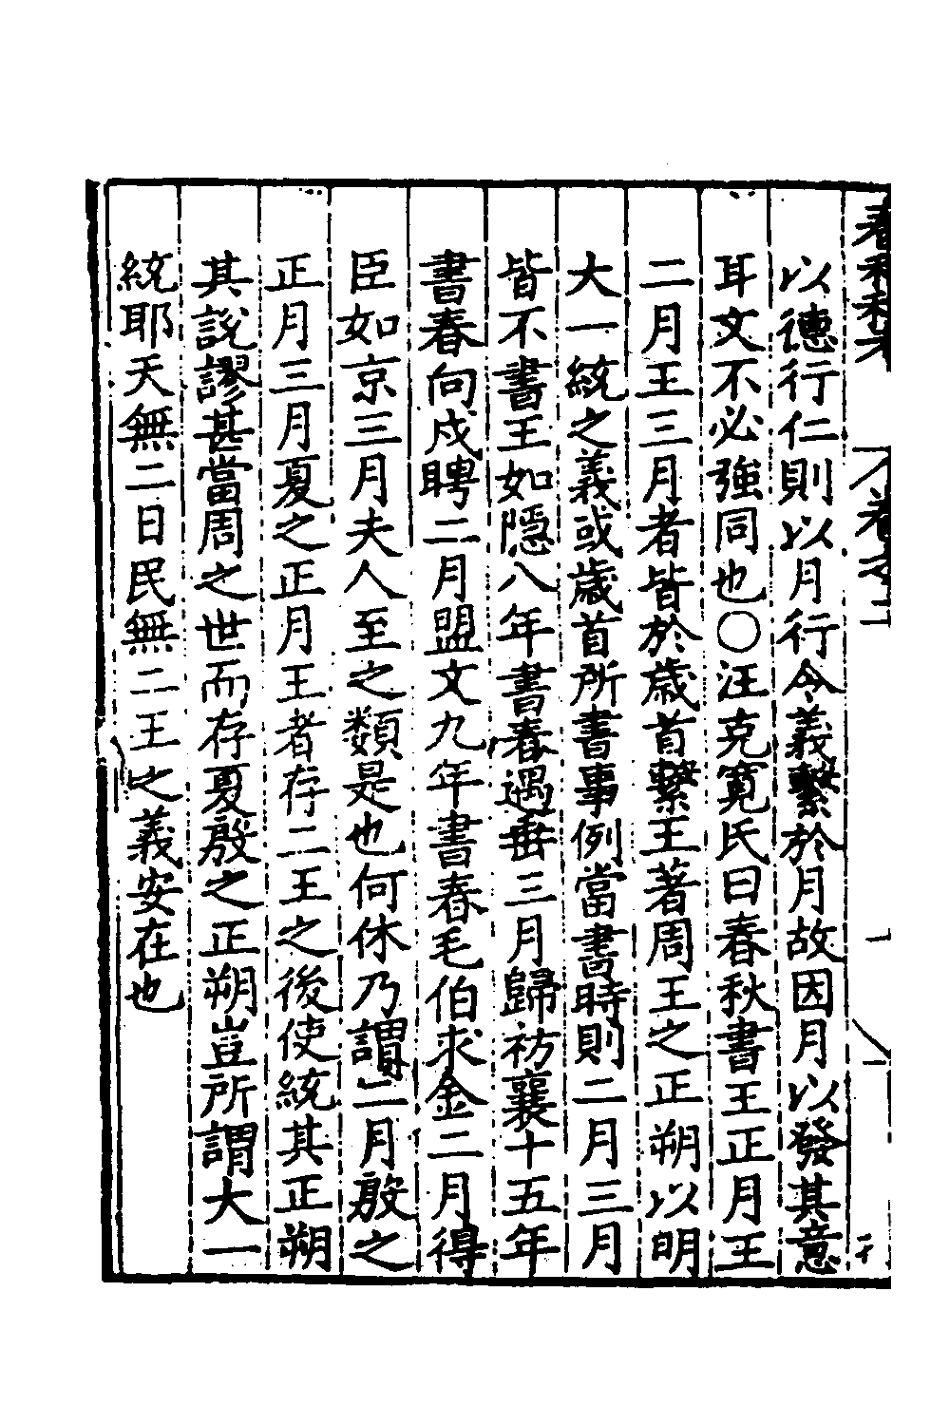 以德行仁則以月行今義繫於月故因月以發其意
耳文不必強同也○汪克寬氏曰春秋書王正月王
二月王三月者皆於歲首繫王著周王之正朔以明
大一統之義或歲首所書事例當書時則二月三月
皆不書王如隱八年書春遇垂三月歸祊襄十五年
書春向戍聘二月盟文九年書春毛伯求金二月得
臣如京三月夫人至之類是也何休乃謂二月殷之
正月三月夏之正月王者存二王之後使統其正朔
其說謬甚當周之世而存夏殷之正朔豈所謂大一
統耶天無二日民無二王之義安在也